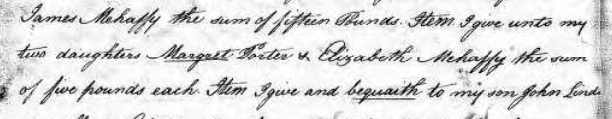 James Mehaffy the sum of fifteen Pounds. Item I give unto my
two daughters Margret Porter & Elizabeth Mehaffy the sum
of five pounds each. Item I give and bequaith to my son John Lind